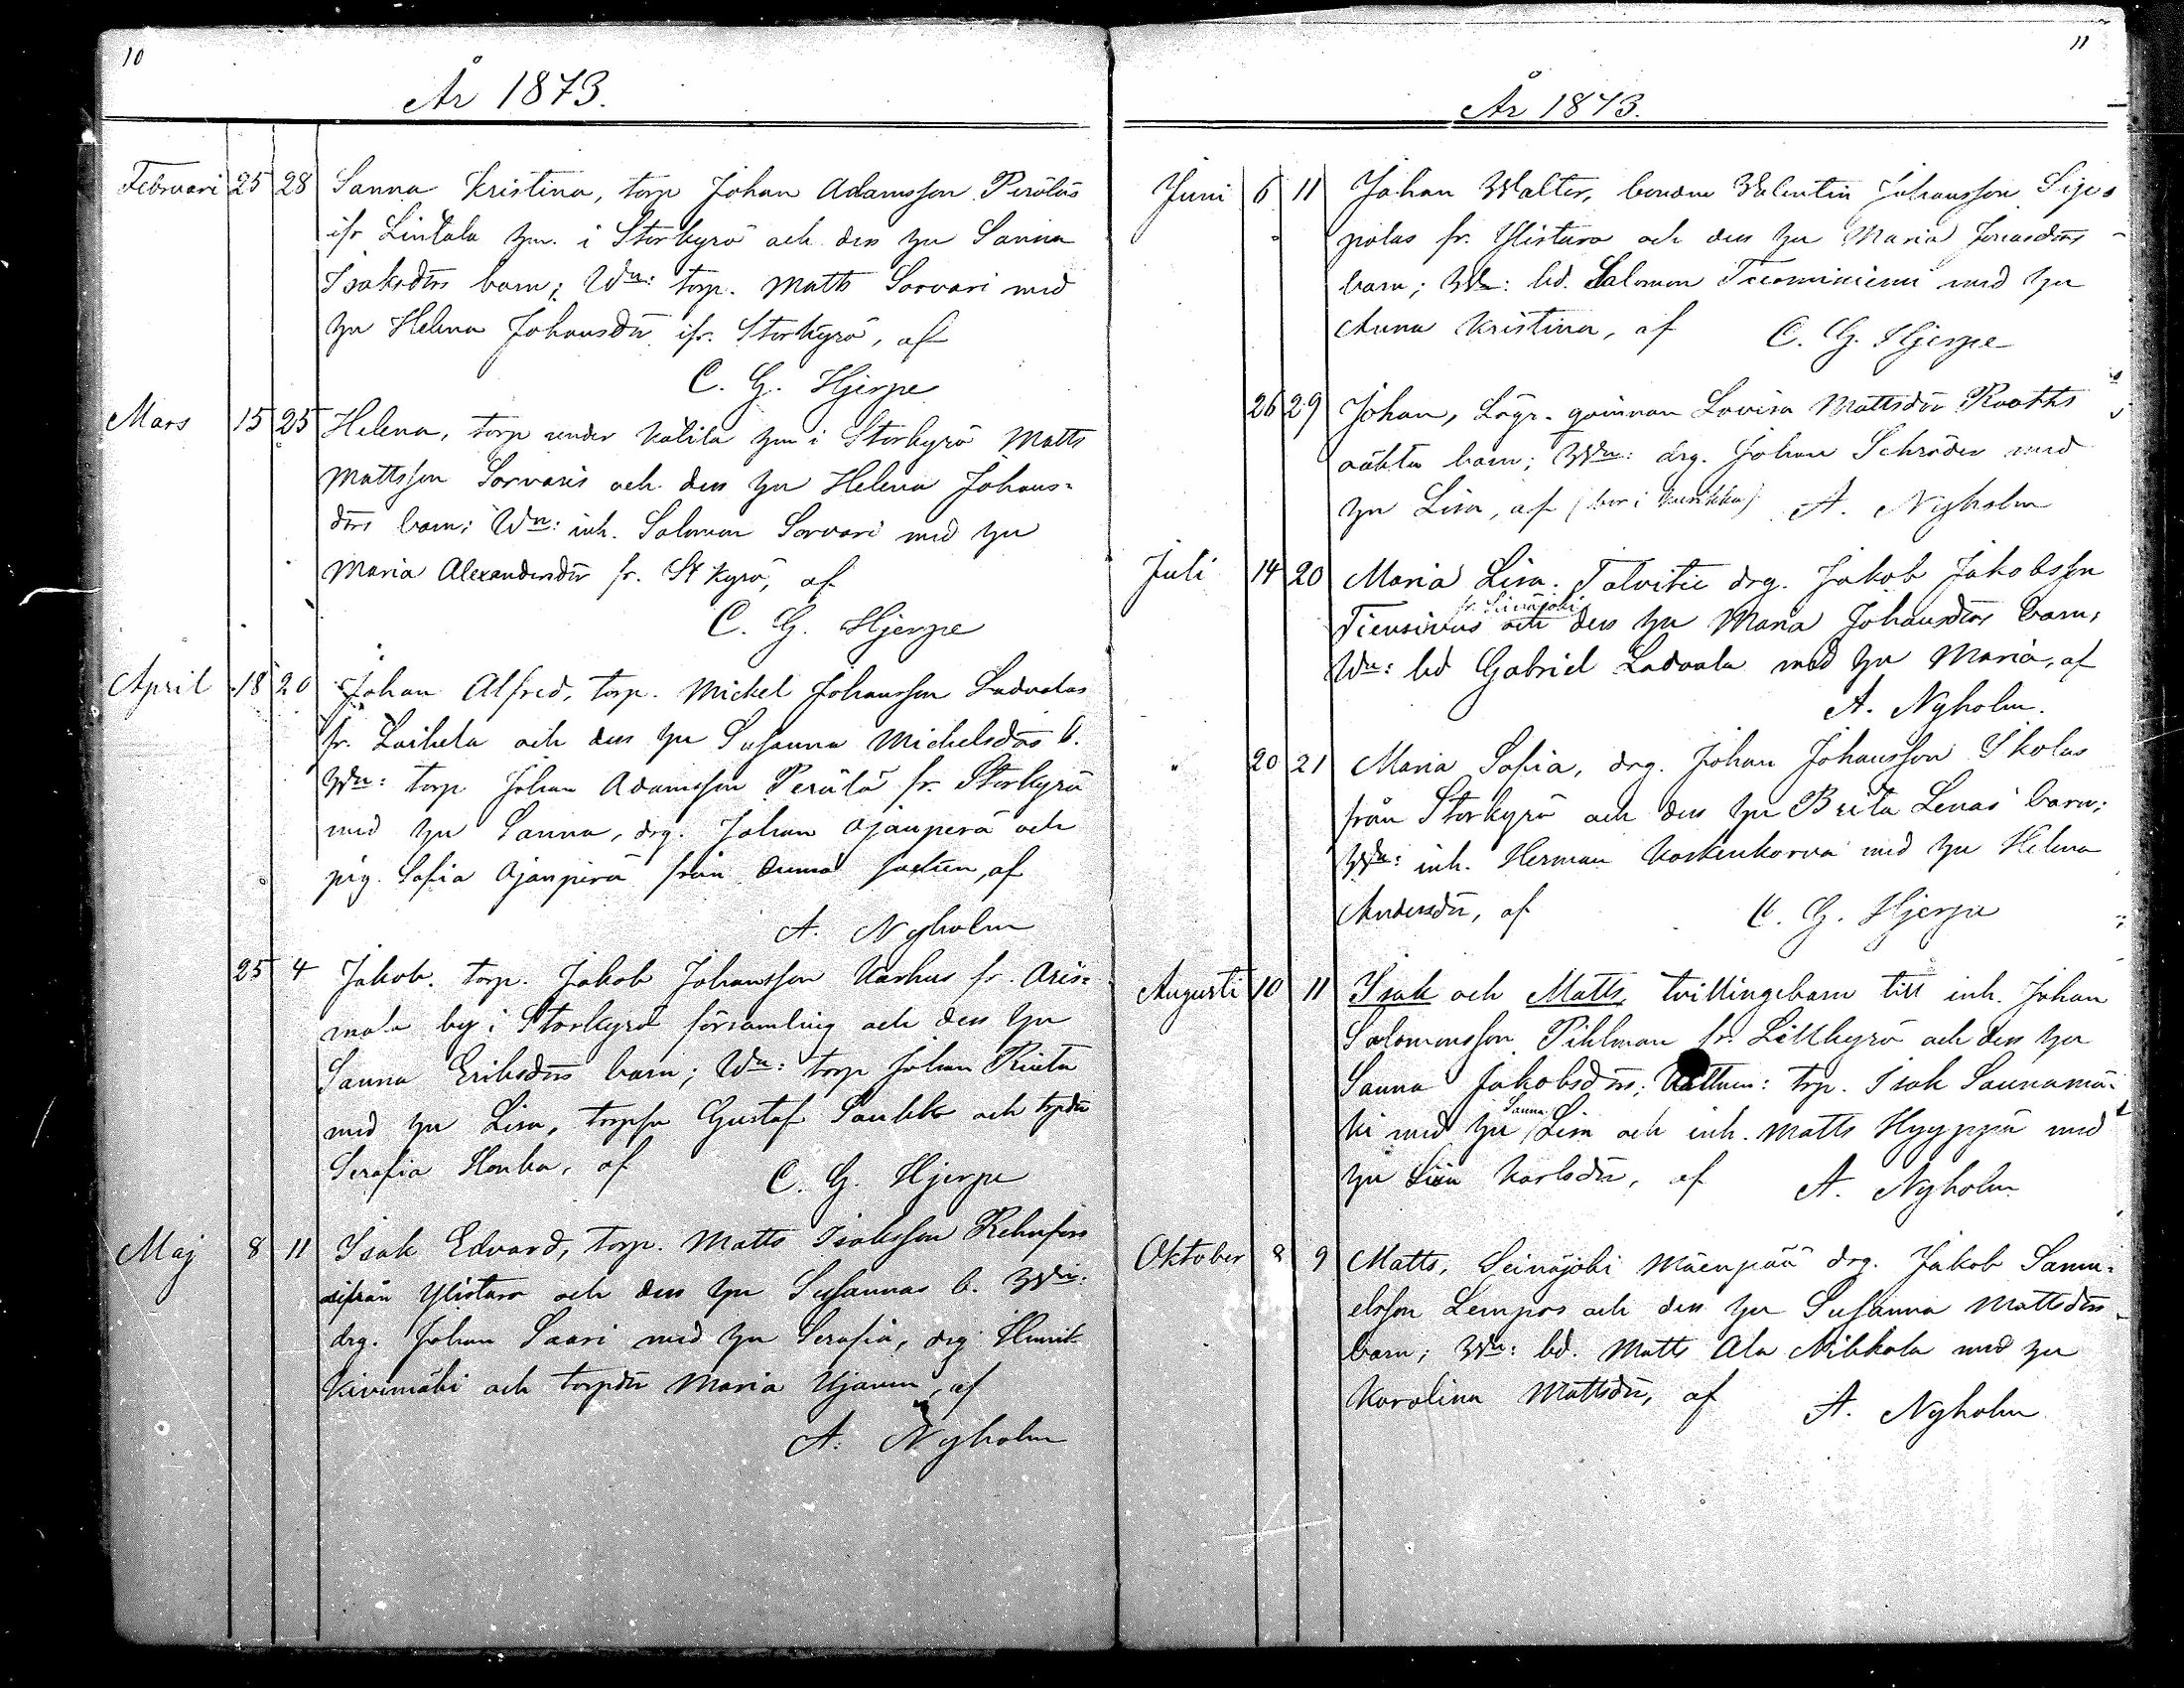 10
År 1873.
Februari 25 28 Sanna Kristina, torp Johan Adamsson Peräläs
ifr Lintala hm. i Storkyrö och dess hu Sanna
Isaksdrs barn; Wn: torp. Matts Sorvari med
hu Helena Johansdr ifr. Storkyrö, af
C. G. Hjerpe
Mars 15 25 Helena, torp under Kälilä hm i Storkyrö Matts
Mattsson Sorvaris och dess hu Helena Johans=
drs barn; Wn: inh. Salomon Sorvari med hu
Maria Alexandersdr fr. St Kyrö, af
C. G. Hjerpe
April 18 20 Johan Alfred, torp. Mickel Johansson Ladvalas
fr. Laihela och dess hu Susanna Michelsdrs b.
Wn: torp Johan Adamsson Perälä fr. Storkyrö
med hu Sanna, drg. Johan Ajanperä och
pig. Sofia Ajanperä från socken, af
A. Nyholm
25 4 Jakob. torp. Jakob Johansson Karhus fr. Oris=
mala by i Storkyrö församling och dess hu
Sanna Eriksdrs barn; Wn: torp Johan Rinta
med hu Lisa, torpsn Gustaf Saukko och torpdr
Serafia Honka, af C. G. Hjerpe
Maj 8 11 Isak Edvard, torp. Matts Isaksson Rehnfors
ifrån Ylistaro och dess hu Susannas b. Wn:
drg. Johan Saari med hu Serafia, drg Henrik
Kivimäki och torpdr Maria Ujainen, af
A. Nyholm
11
År 1873.
Juni 6 11 Johan Walter, bonden Valentin Johansson Sipes
polas fr. Ylistaro och dess hu Maria Jonasdrs
barn; Wn: bd. Salomon Tuominiemi med hu
Anna Kristina, af C. G. Hjerpe
26 29 Johan, Lögr. qvinnan Lovisa Mattsdr Rooths
oäkta barn; Wn: drg. Johan Schröder med
hu Lisa, af (bor i Kurikka) A. Nyholm
Juli 14 20 Maria Lisa. Talvitie drg. Jakob Jakobsson
fr. Seinäjoki
och dess hu Maria Johansdrs barn;
Wn: bd Gabriel Ladvala med hu Maria, af
A. Nyholm.
" 20 21 Maria Sofia, drg. Johan Johansson Skolas
från Storkyrö och dess hu Brita Lenas barn;
Wn: inh. Herman Koskenkorva med hu Helena
Andersdr, af C. G. Hjerpe
Augusti 10 11 Isak och Matts, tvillingebarn till inh. Johan
Salomonsson Pihlman fr. Lillkyrö och dess hu
Sanna Jakobsdrs; Vittnen: trp. Isak Saunamä=
Sanna
ki med hu Lisa och inh. Matts Hyyppä med
hu Lisa Karlsdr, af A. Nyholm
Oktober 8 9 Matts, Seinäjoki Mäenpää drg. Jakob Samu=
elsson Lempos och dess hu Susanna Mattsdrs
barn; Wn: bd. Matts Ala Nikkola med hu
Karolina Mattsdr, af A. Nyholm